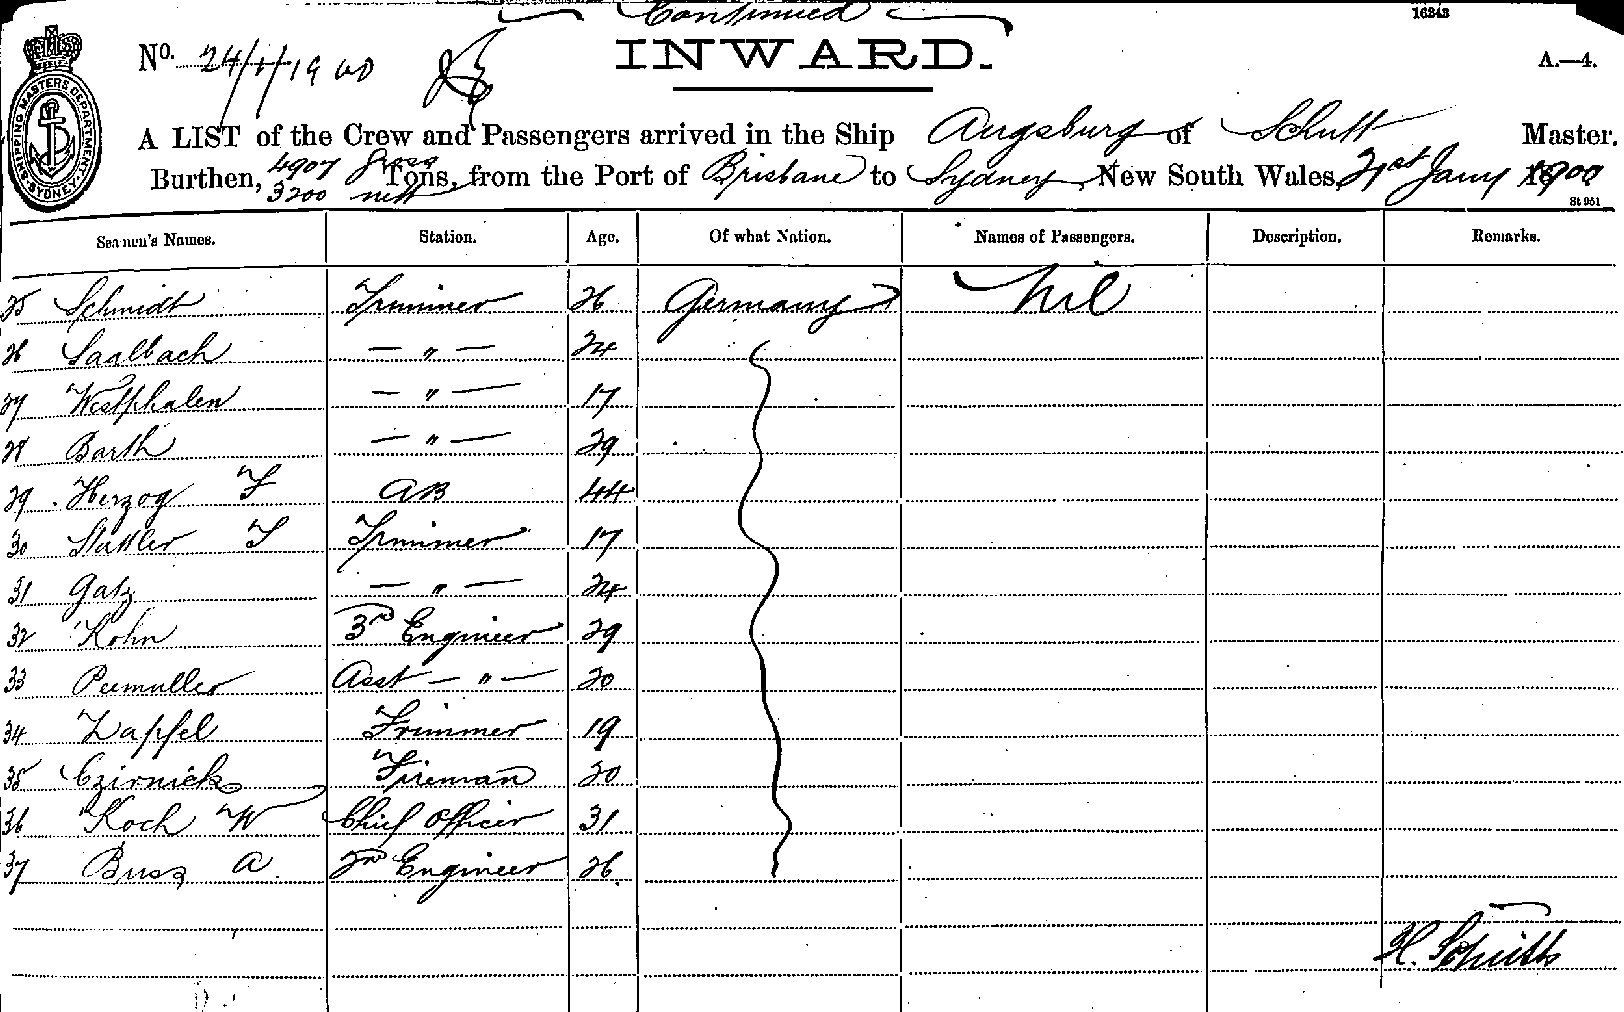 Continued
16343
No. 24/1/1900
INWARD.
A.—4.
SHIPPING MASTERS DEPARTMENT SYDNEY
A LIST of the Crew and Passengers arrived in the Ship Augsburg of Schutt Master.
Burthen, 4907 gross 3200 nett Tons, from the Port of Brisbane to Sydney, New South Wales, 21st Jany 1900
St 951
Seamen's Names. Station. Age. Of what Nation. Names of Passengers. Description. Remarks.
25 Schmidt Trimmer 26 Germany Nil
26 Saalbach — " — 24
27 Westphalen — " — 17
28 Barth — " — 29
29 Herzog F AB 44
30 F Trimmer 17
31 Gatz — " — 24
32 Kohn 3rd Engineer 29
33 Peemuller Asst — " — 20
34 Zapfel Trimmer 19
35 Czirnick Fireman 20
36 Koch W Chief Officer 31
37 Buss A. 2nd Engineer 26.
H. Schütt